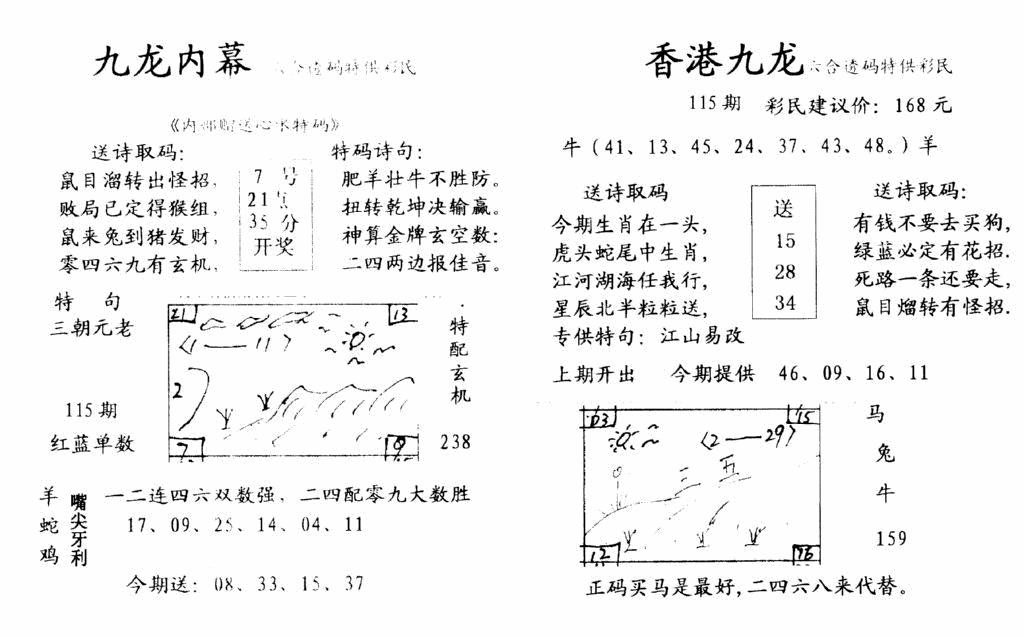 九龙内幕 六合透码特供彩民
《内部赠送心水特码》
送诗取码：
鼠目溜转出怪招，
败局已定得猴组，
鼠来兔到猪发财，
零四六九有玄机，
7 号
21点
35 分
开奖
特码诗句：
肥羊壮牛不胜防。
扭转乾坤决输赢。
神算金牌玄空数：
二四两边报佳音。
特 句
三朝元老
115期
红蓝单数
21
13
〈1——11〉
2
7
9
特配玄机
238
羊
蛇
鸡
嘴尖牙利
一二连四六双数强，二四配零九大数胜
17、09、25、14、04、11
今期送：08、33、15、37
香港九龙 六合透码特供彩民
115期 彩民建议价：168元
牛（41、13、45、24、37、43、48。）羊
送诗取码
今期生肖在一头，
虎头蛇尾中生肖，
江河湖海任我行，
星辰北半粒粒送，
送
15
28
34
送诗取码：
有钱不要去买狗，
绿蓝必定有花招.
死路一条还要走，
鼠目熘转有怪招.
专供特句：江山易改
上期开出 今期提供 46、09、16、11
03
15
〈2——29〉
三 五
12
马
兔
牛
159
正码买马是最好，二四六八来代替。